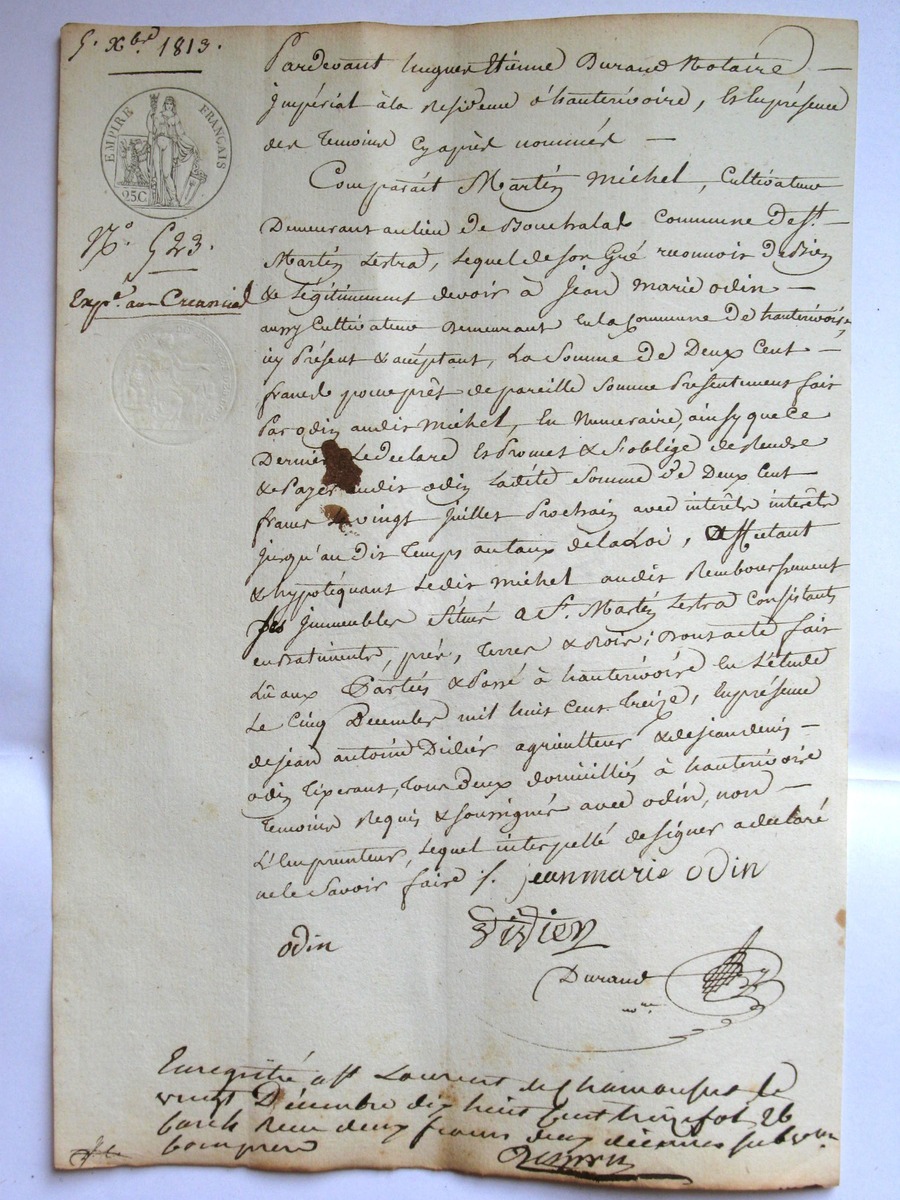 5. Xbre 1813.
EMPIRE FRANÇAIS
25C
N.° 523.
Exp.e au Creancier
Pardevant hugues Etienne Durand Notaire
Impérial à la residence d'hauterivoire, Et En présence
des temoins cy après nommés —
Comparait Martin Michel, Cultivateur
Demeurant au lieu de Commune de St.
Martin Lestrad, Lequel de son Gré reconnois De Bien
& Légitimement devoir à Jean Marie odin —
aussy Cultivateur Demeurant En la Commune de hauterivoire,
icy Présent & acceptant, La Somme de Deux Cent —
francs pour prêt de pareille Somme Présentement fait
Par odin audit Michel, En Numeraire, ainsy que Ce
Dernier Le declare Et Promet & s'oblige de Rendre
& Payer audit odin Ladite Somme de Deux Cent
francs Le vingt Juillet Prochain avec interêts interêts
jusqu'au dit Temps au taux de la Loi, affectant
& hypotéquant Ledit Michel audit Remboursement
Ses Immeubles Situés a St. Martin Lestra Consistants
en Batiments, prés, Terres & Bois; Dont acte fait
Lu aux Parties & Passé à hauterivoire En L'étude
Le Cinq Decembre mil huit Cent Treize, En présence
de jean antoine Didier agriculteur & de jean denis —
odin Tixerant, Tous Deux domiciliés à hauterivoire
Temoins Requis & soussignés avec odin, non —
L'Emprunteur, Lequel interpellé de signer a declaré
ne le Savoir faire /. jean marie odin
odin Didier
Durand
nre
Enregistré à St Laurent de Chamousset le
vingt Décembre dix huit Cent treize fol. 26
reçu deux francs deux décimes subvon
comprise